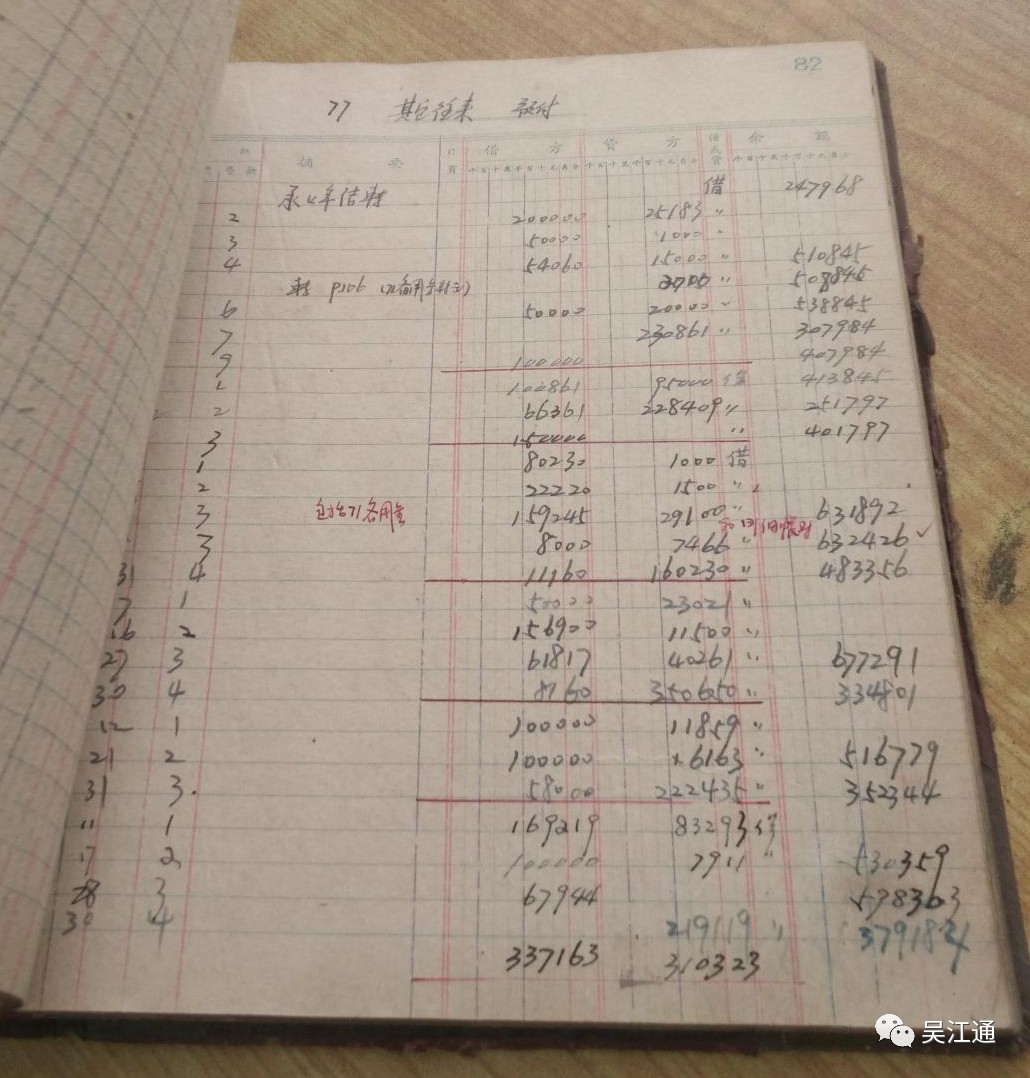 82
77 其它往来 预付
摘 要 日页 借 方 贷 方 借或贷 余 额
千百十万千百十元角分 千百十万千百十元角分 千百十万千百十元角分
承上年结转 借 247968
2 200000 25183 〃
3 50000 1000 〃
4 54060 15000 〃 510845
转 P106 〃 508845
6 50000 20000 〃 538845
7 230861 〃 307984
9 100000 407984
1 100861 95000 借 413845
2 66361 228409 〃 251797
3 150000 〃 401797
1 80230 1000 借
2 22220 1500 〃
3 159245 29100 〃 631892
3 8000 7466 〃 632426 ✓
31 4 11160 160230 〃 483356
7 1 50000 23021 〃
16 2 156900 11500 〃
27 3 61817 40261 〃 677291
30 4 8160 350650 〃 334801
12 1 100000 11859 〃
21 2 100000 6163 〃 516779
31 3 58000 222435 〃 352344
11 1 169219 83293 借
17 2 100000 7911 〃 530359
28 3 67944 598303
30 4 219119 〃 379184
337163 310323
吴江通